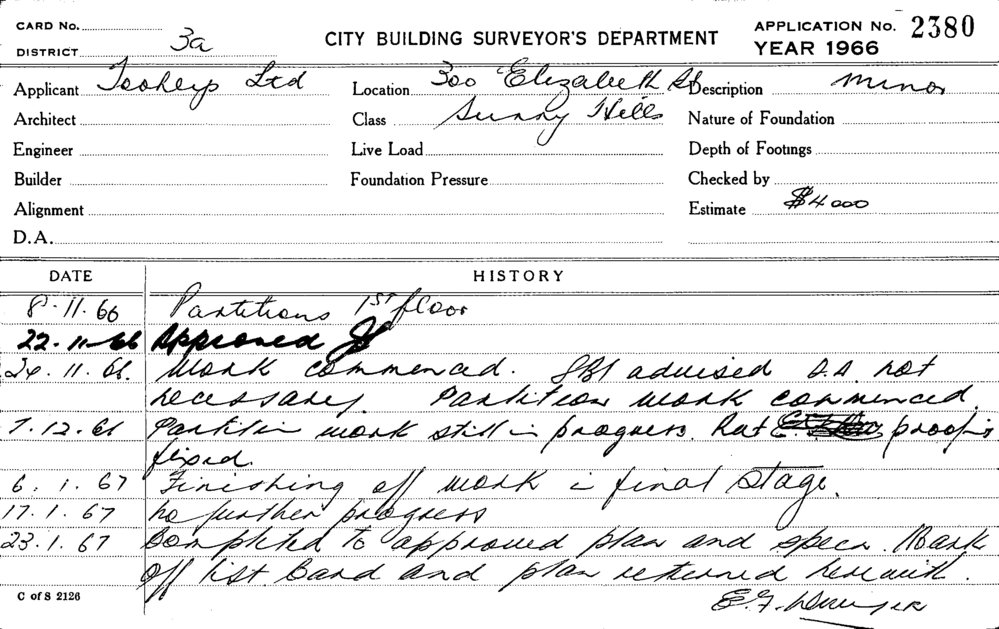 CARD No.
DISTRICT 3a
CITY BUILDING SURVEYOR'S DEPARTMENT
APPLICATION No. 2380
YEAR 1966
Applicant Tooheys Ltd Location 300 Elizabeth St Description Minor
Architect Class Surry Hills Nature of Foundation
Engineer Live Load Depth of Footings
Builder Foundation Pressure Checked by
Alignment Estimate $4000
D.A.
DATE HISTORY
8.11.66 Partitions 1ST floor
22.11.66 Approved
24.11.66. Work commenced. advised D.A. not
necessary. Partition work commenced.
7.12.66 Partition work still in progress. Rat proofing
fixed.
6.1.67 Finishing off work in final stage.
17.1.67 no further progress
23.1.67 Completed to approved plan and specn. Mark
off list Card and plan returned herewith.
E.F.
C of S 2126